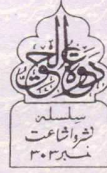 دعوۃ الحق
سلسلہ
نشر و اشاعت
نمبر ۳۰۳